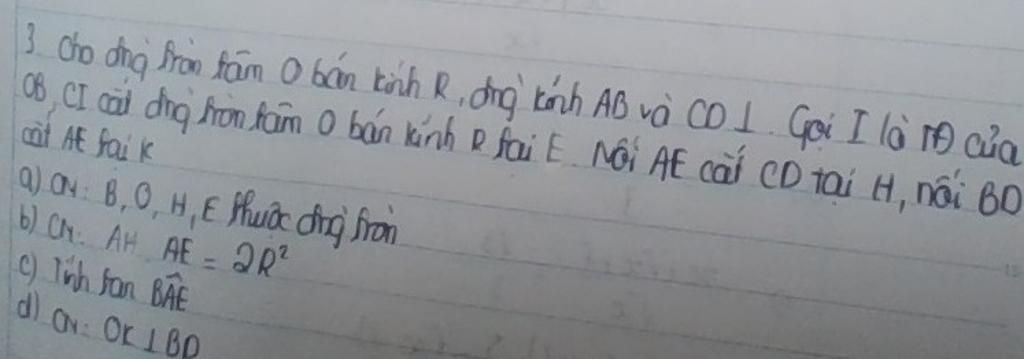 3. Cho đng` tròn tâm O bán kính R, đng` kính AB và CD ⊥. Gọi I là TĐ của
OB, CI cắt đng` tròn tâm O bán kính R tại E. Nối AE cắt CD tại H, nối BD
cắt AE tại K
a) CM: B, O, H, E thuộc đng` tròn
b) CM: AH AE = 2R²
c) Tính tan BAE
d) CM: OK ⊥ BD